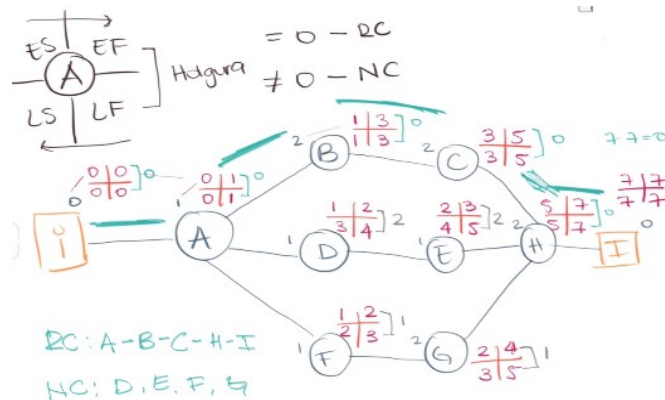 ES EF
A
LS LF
Holgura
= 0 - RC
≠ 0 - NC
0 0
0 0 ] 0
0
i
0 1
0 1 ] 0
1
A
2
B
1 3
1 3 ] 0
2
C
3 5
3 5 ] 0
7 7 = 0
1
D
1 2
3 4 ] 2
1
E
2 3
4 5 ] 2
2
H
5 7
5 7 ] 0
7 7
7 7
0
I
1
F
1 2
2 3 ] 1
2
G
2 4
3 5 ] 1
RC: A-B-C-H-I
NC: D, E, F, G